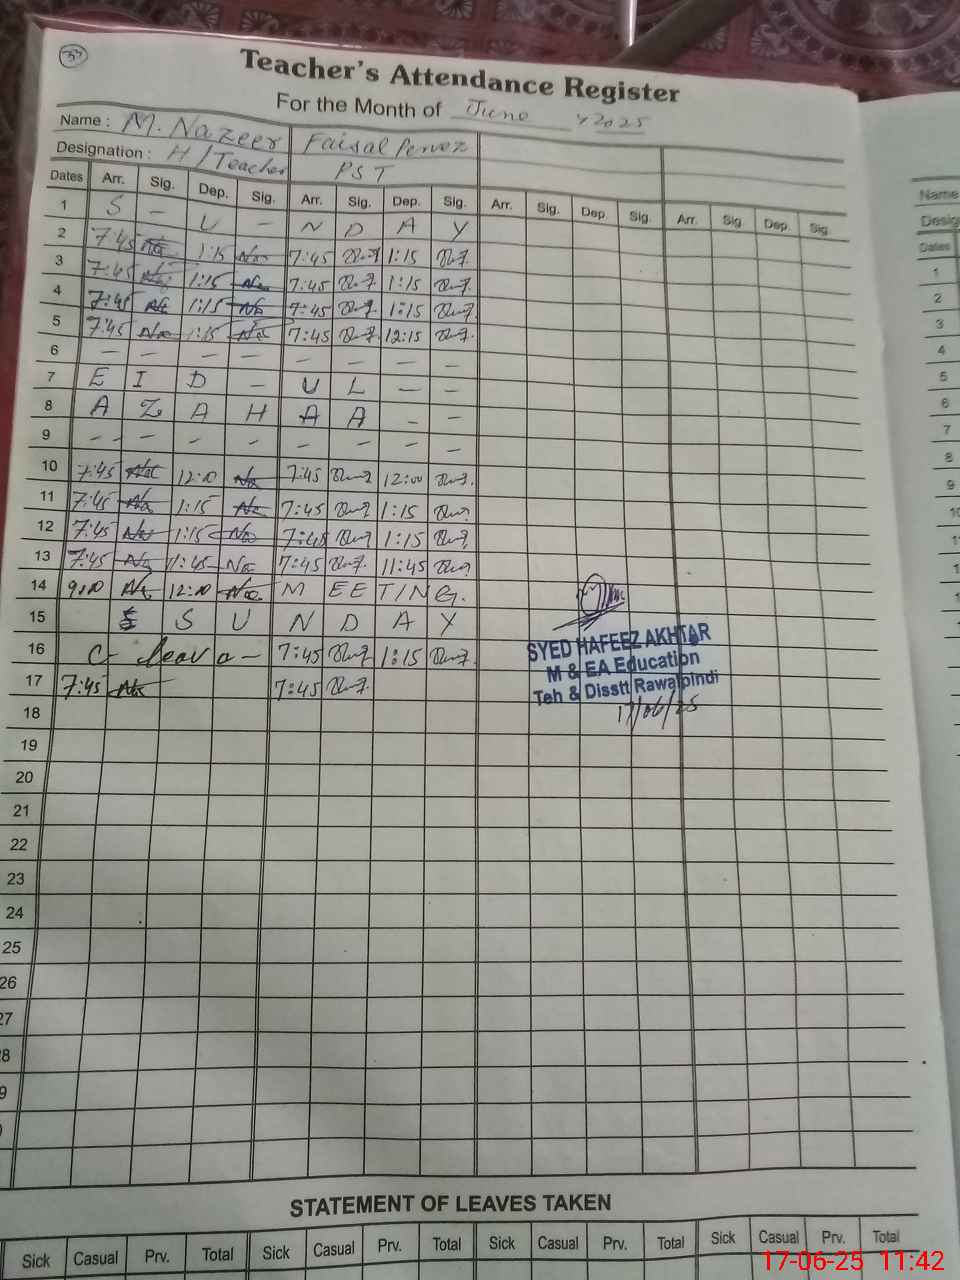 37
Teacher's Attendance Register
For the Month of June, 2025
Name: M. Nazeer Faisal Pervez
Designation: H/Teacher PST
Dates Arr. Sig. Dep. Sig. Arr. Sig. Dep. Sig. Arr. Sig. Dep. Sig. Arr. Sig. Dep. Sig.
1 S - U - N D A Y
2 7:45 1:15 7:45 1:15
3 7:45 1:15 7:45 1:15
4 7:45 1:15 7:45 1:15
5 7:45 1:15 7:45 12:15
6 - - - - - - -
7 E I D - U L - -
8 A Z A H A A - -
9 - - - - - - - -
10 7:45 12:00 7:45 12:00
11 7:45 1:15 7:45 1:15
12 7:45 1:15 7:45 1:15
13 7:45 11:45 7:45 11:45
14 9:00 12:00 MEETING.
15 S U N D A Y
16 C- leave - 7:45 1:15
17 7:45 7:45
SYED HAFEEZ AKHTAR
M & EA Education
Teh & Disstt Rawalpindi
17/06/25
18
19
20
21
22
23
24
25
26
27
28
STATEMENT OF LEAVES TAKEN
Sick Casual Prv. Total Sick Casual Prv. Total Sick Casual Prv. Total Sick Casual Prv. Total
17-06-25 11:42
Name
Dates
1
2
3
4
5
6
7
8
9
10
11
12